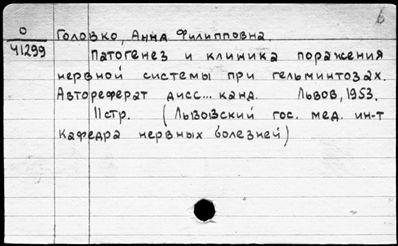 б
О
41299
Головко, Анна Филипповна.
Патогенез и клиника поражения
нервной системы при гельминтозах.
Автореферат дисс... канд. Львов, 1953.
11стр. (Львовский гос. мед. ин-т
Кафедра нервных болезней)